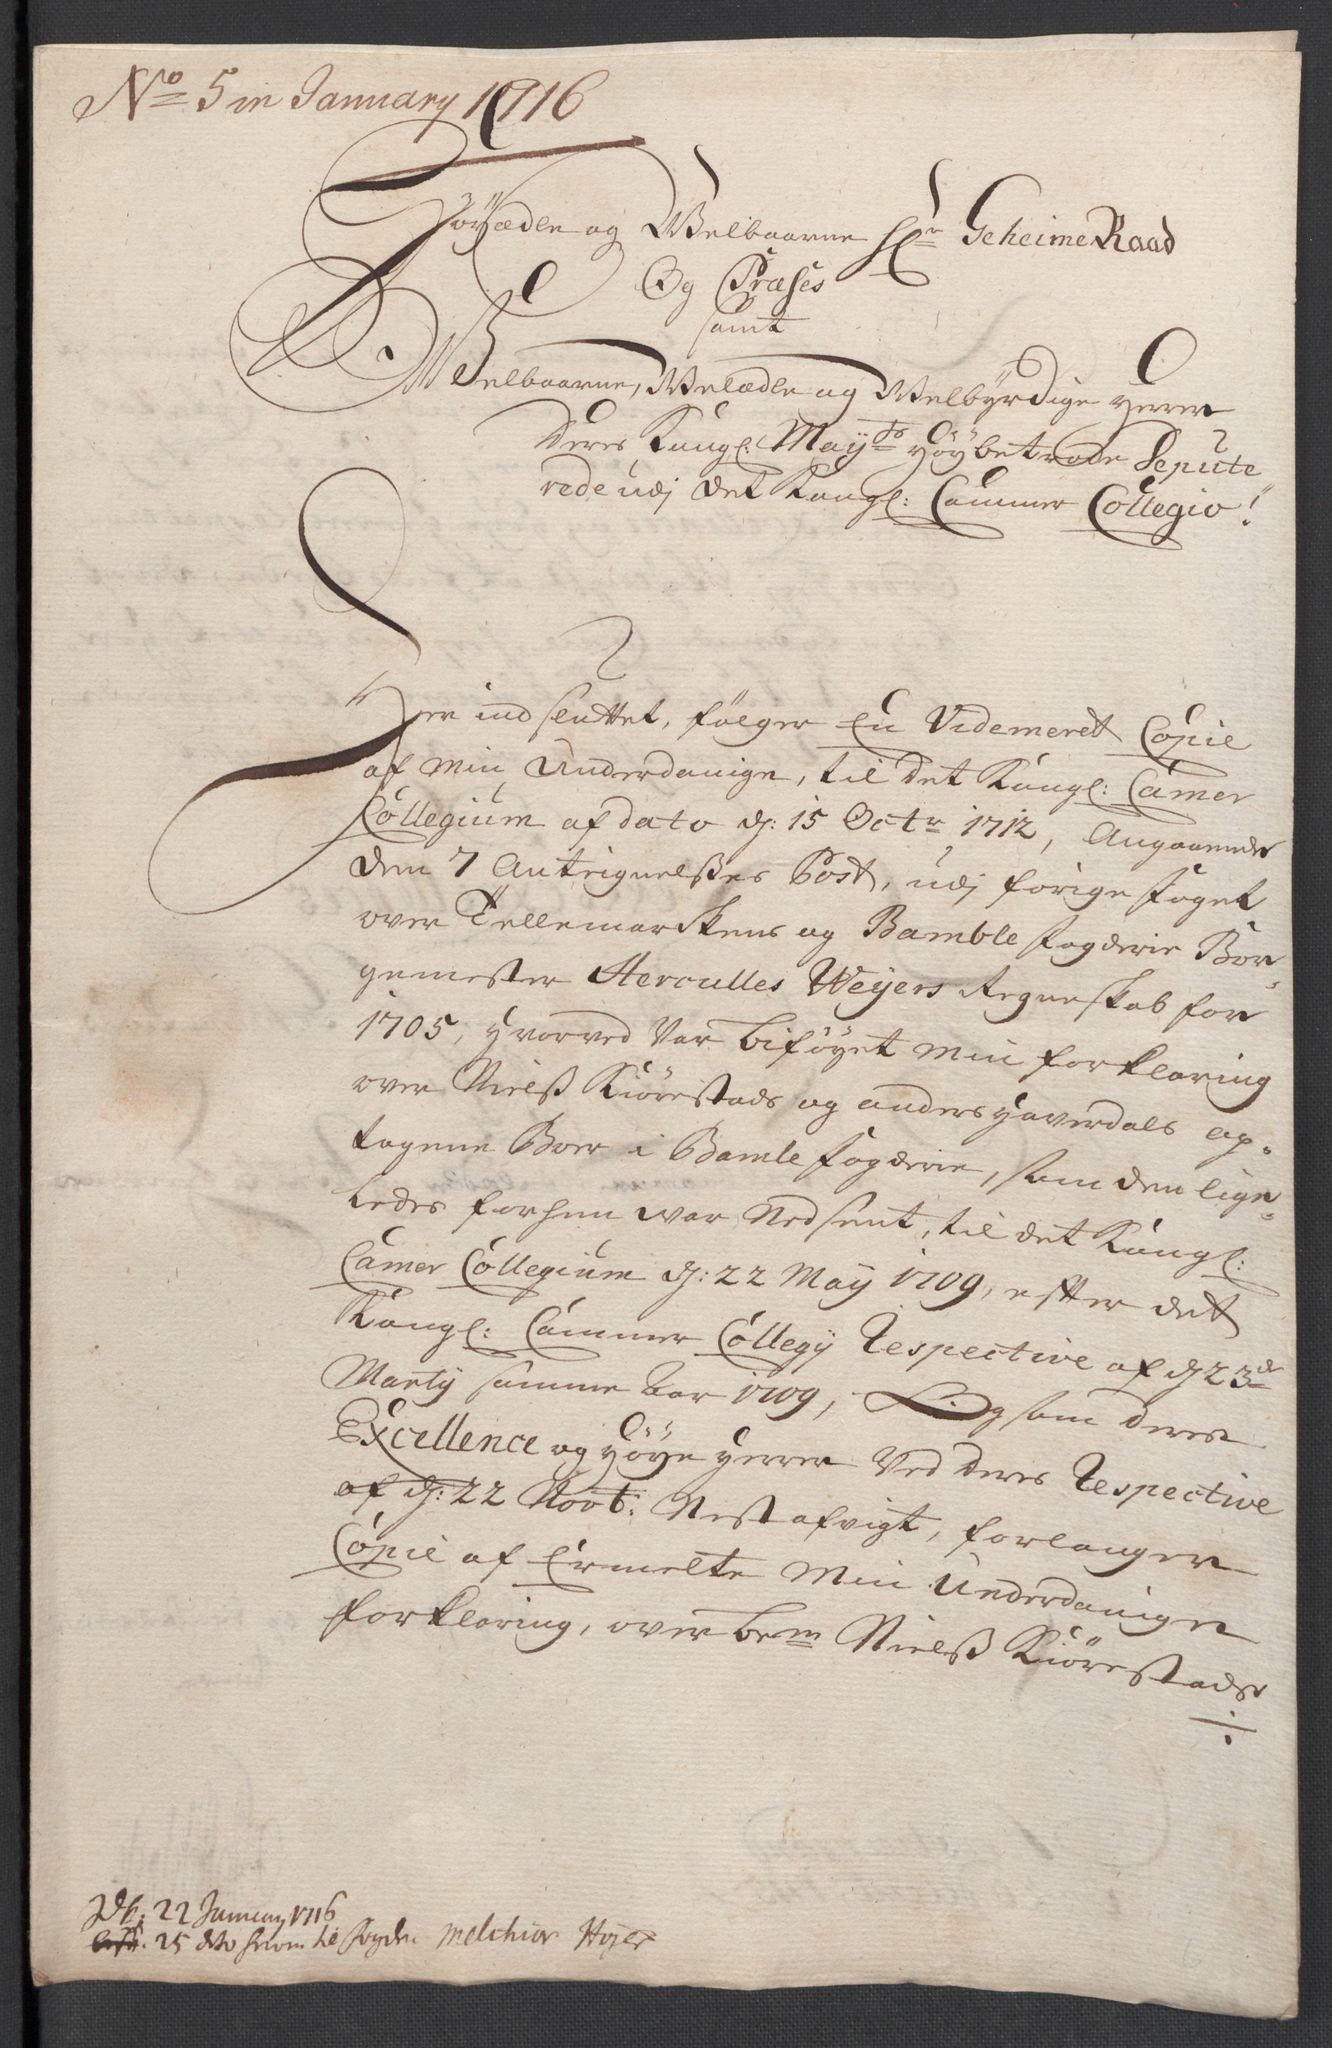 No 5 in January 1716
Høyædle og Welbaarne Hr Geheime Raad
Og Præses
samt
Welbaarne, Welædle og Welbyrdige Herrer
Deres Kongl: Mayts Høybetrode Depute
rede udj Det Kongl: Cammer Collegio!
Her indsluttet, følger En Videmeret Copie
af Min Underdanige, til Det Kongl: Camer
Collegium af dato d: 15 Octr 1712, Angaaende
Den 7 Antegnelßes Post, udj forige foget
over Tellemarkens og Bamble fogderie Bor-
gemester Herculles Weyers Regneskab for
1705, Hvorved Var biføyet Min forklaring
over Nielß Kiørestads og Anders Haverdals op-
tagene Boer i Bamle fogderie, som den lige-
ledes forhen war Nedsent, til det Kongl:
Camer Collegium d: 22 May 1709, efter det
Kongl: Cammer Collegÿ Respective af d 23de
Martÿ samme aar 1709, Ligesom deres
Excellence og Høye Herrer Ved deres Respective
af d: 22 Novb: Nest afvigt, forlanger
Copie af Ermelte Min Underdanige
forklaring, over bem Nielß Kiørestads
22 January 1716
25 dito Melchior Hojer